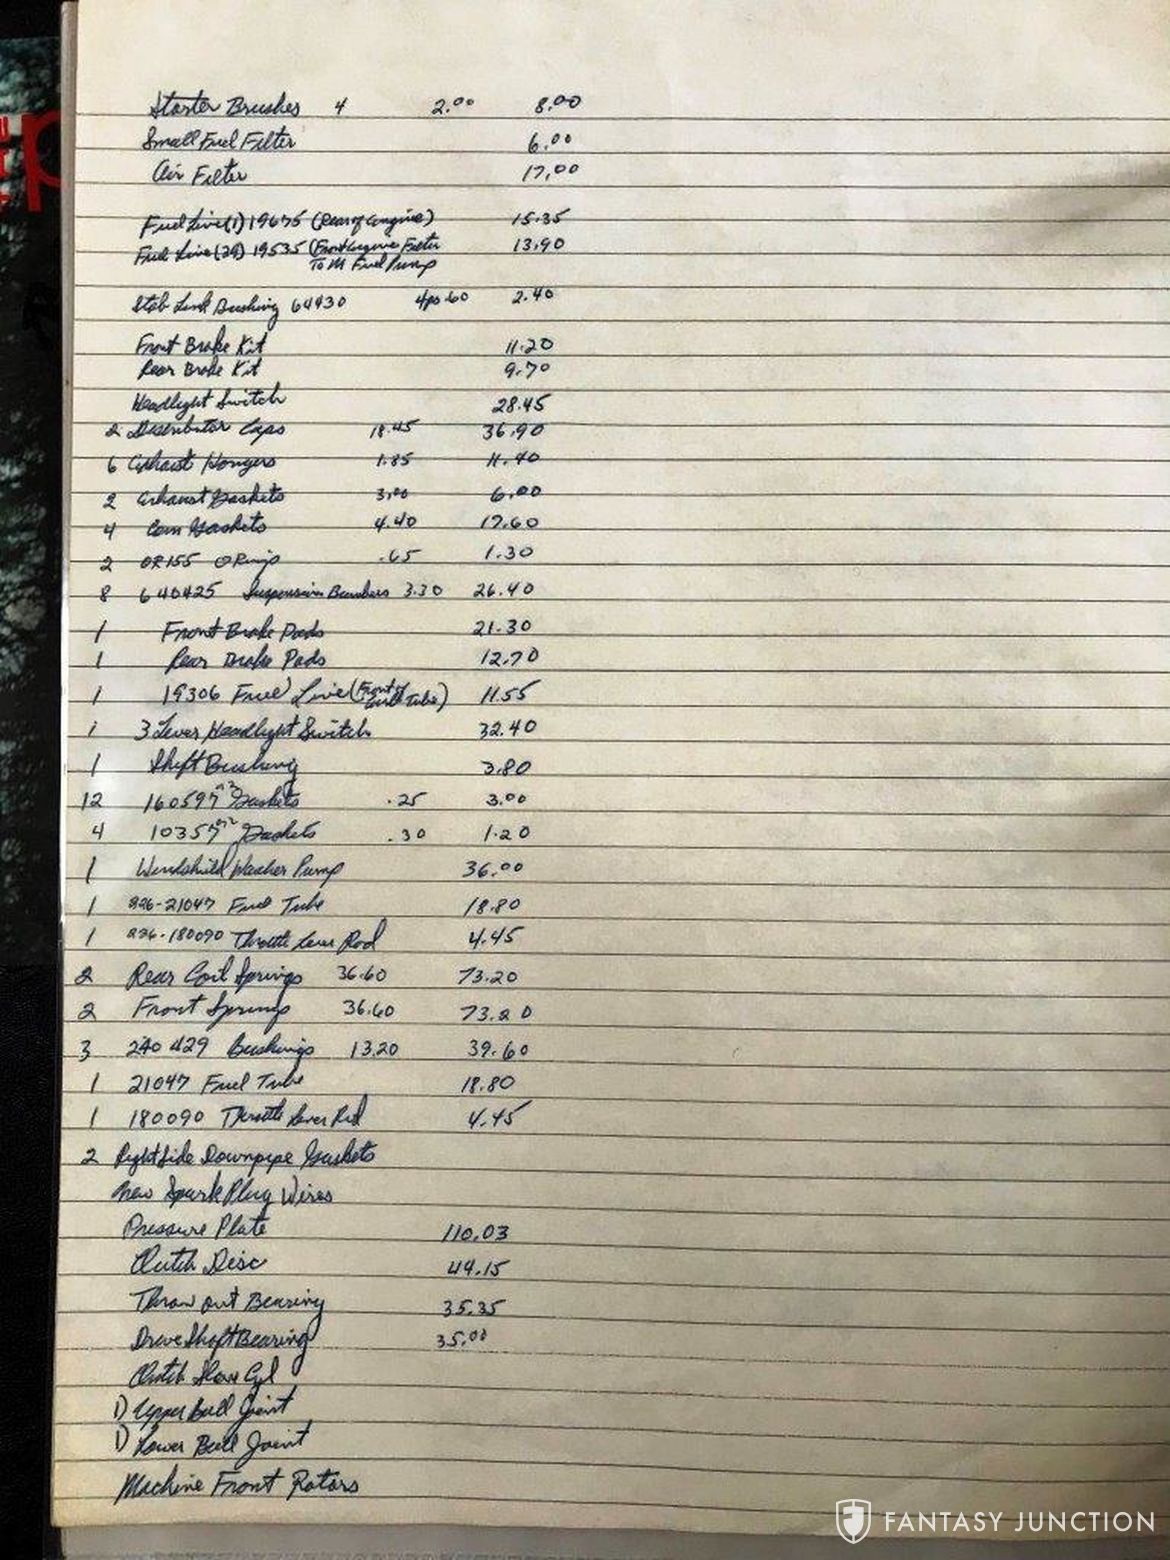 Starter Brushes 4 2.00 8.00
Small Fuel Filter 6.00
Air Filter 17.00
Fuel Line (1) 19675 (Rear of Engine) 15.35
Fuel Line (29) 19535 (Front Engine Filter 13.90
To M Fuel Pump
Stab Link Bushing 64430 4ps .60 2.40
Front Brake Kit 11.20
Rear Brake Kit 9.70
Headlight Switch 28.45
2 Distributor Caps 18.45 36.90
6 Exhaust Hangers 1.85 11.40
2 Exhaust Gaskets 3.00 6.00
4 Cam Gaskets 4.40 17.60
2 OR155 O Rings .65 1.30
8 640425 Suspension Bumbers 3.30 26.40
1 Front Brake Pads 21.30
1 Rear Brake Pads 12.70
1 19306 Fuel Line (Front of Tube) 11.55
1 3 Lever Headlight Switch 32.40
1 Shift Bushing 3.80
12 160597 Gaskets .25 3.00
4 10357 Gaskets .30 1.20
1 Windshield Washer Pump 36.00
1 226-21047 Fuel Tube 18.80
1 226-180090 Throttle Lever Rod 4.45
2 Rear Coil Springs 36.60 73.20
2 Front Springs 36.60 73.20
3 240429 Bushings 13.20 39.60
1 21047 Fuel Tube 18.80
1 180090 Throttle Lever Rod 4.45
2 Right Side Downpipe Gaskets
New Spark Plug Wires
Pressure Plate 110.03
Clutch Disc 44.15
Throw out Bearing 35.35
Drive Shaft Bearing 35.00
Clutch Slave Cyl
1) Upper Ball Joint
1) Lower Ball Joint
Machine Front Rotors
FANTASY JUNCTION